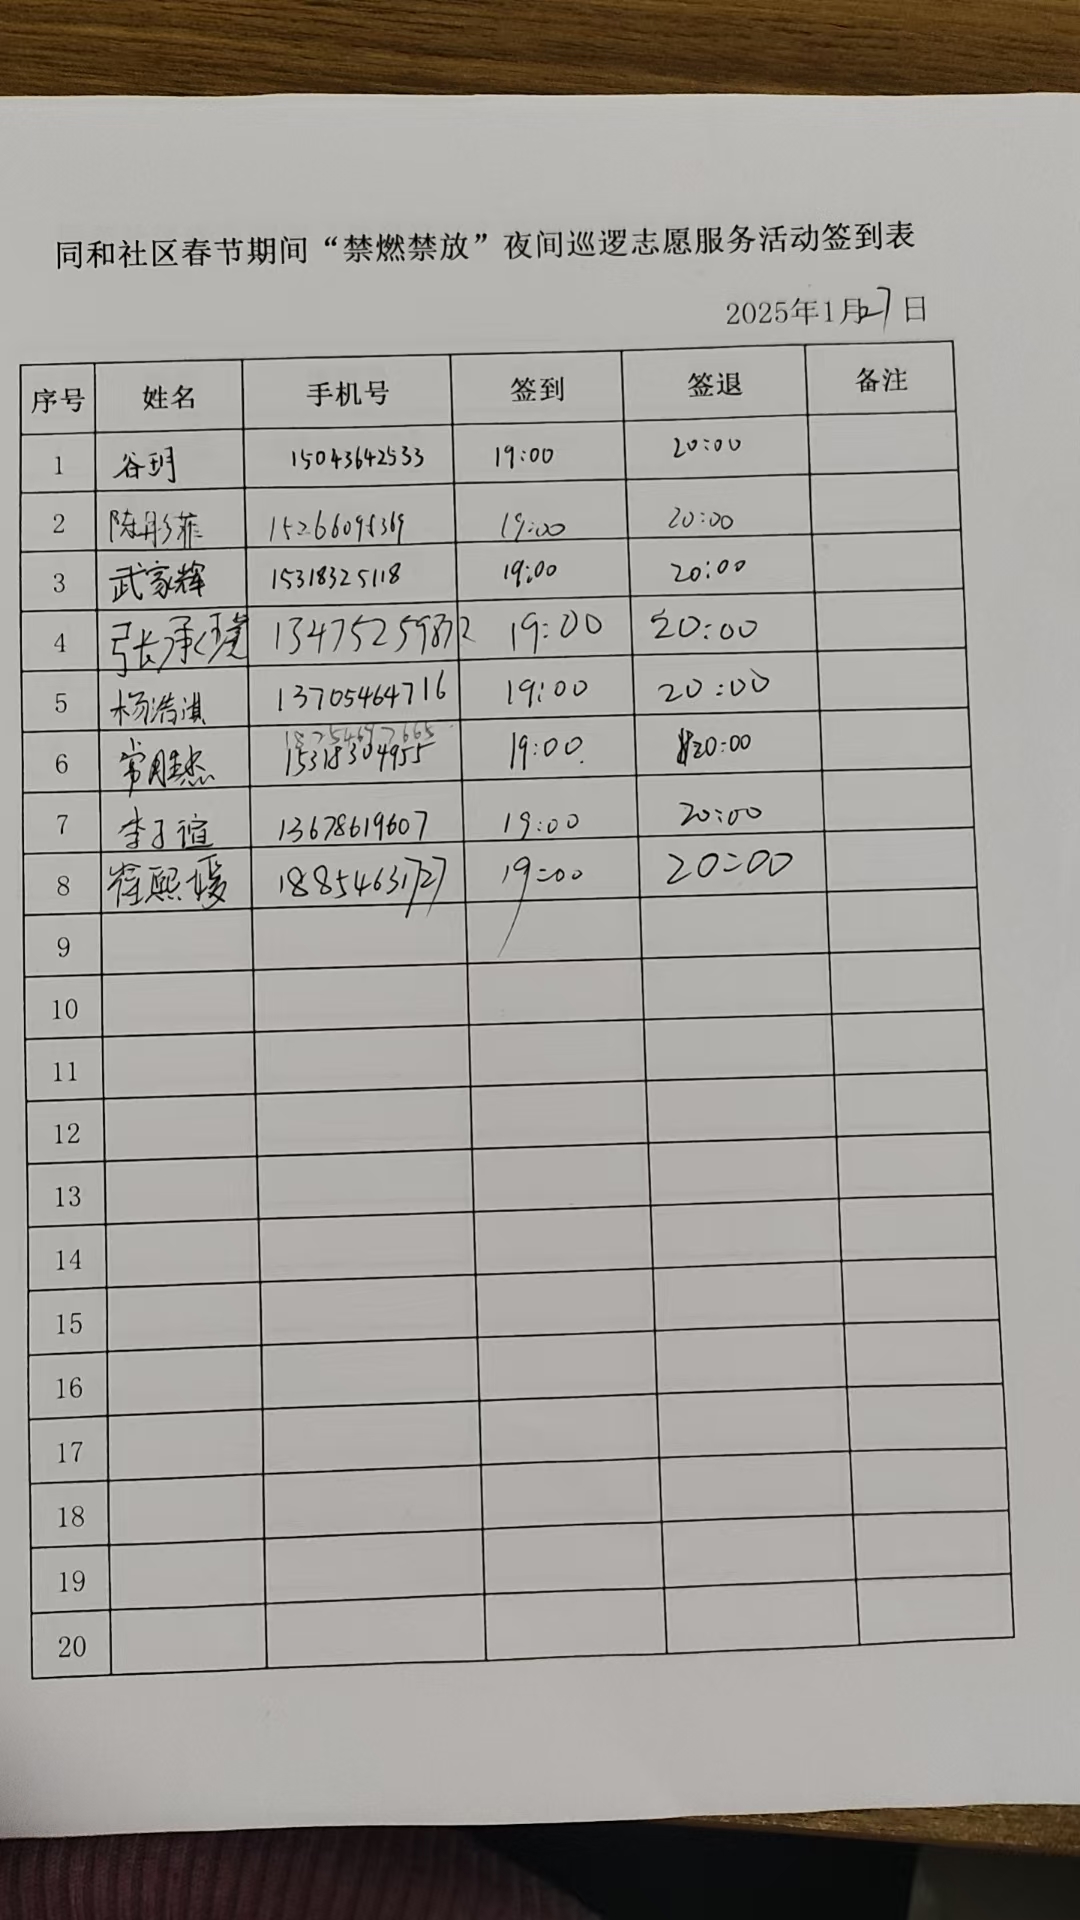 同和社区春节期间“禁燃禁放”夜间巡逻志愿服务活动签到表
2025年1月27日
序号 姓名 手机号 签到 签退 备注
1 谷玥 15043642533 19:00 20:00
2 陈彤菲 19:00 20:00
3 武家辉 15318325118 19:00 20:00
4 张承 19:00 20:00
5 杨浩淇 13705464716 19:00 20:00
6 常胜杰 15318304955 19:00 20:00
7 李子谊 13678619607 19:00 20:00
8 崔熙媛 18854631727 19:00 20:00
9
10
11
12
13
14
15
16
17
18
19
20